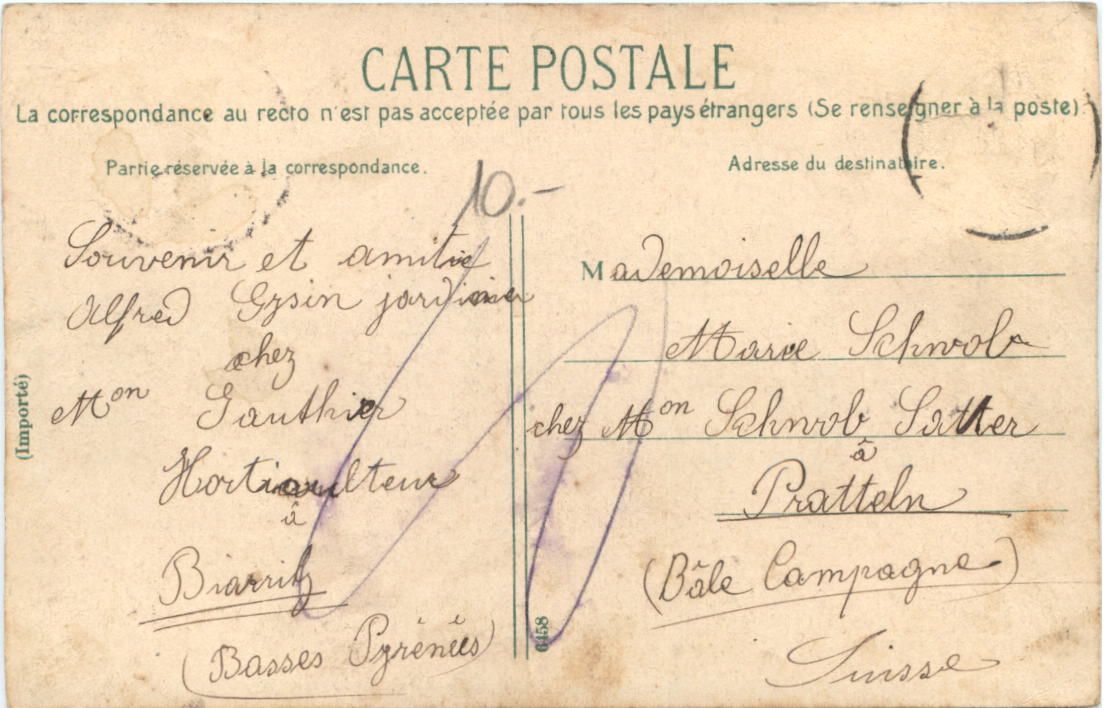 CARTE POSTALE
La correspondance au recto n'est pas acceptée par tous les pays étrangers (Se renseigner à la poste)
Partie réservée à la correspondance.
Adresse du destinataire.
10.-
Souvenir et amitié
Alfred Gysin jardinier
chez
Mon Gauthier
Horticulteur
à
Biarritz
(Basses Pyrénées)
(Importé)
6458
Mademoiselle
Marie Schwob
chez Mon Schwob Satter
à
Pratteln
(Bâle Campagne)
Suisse